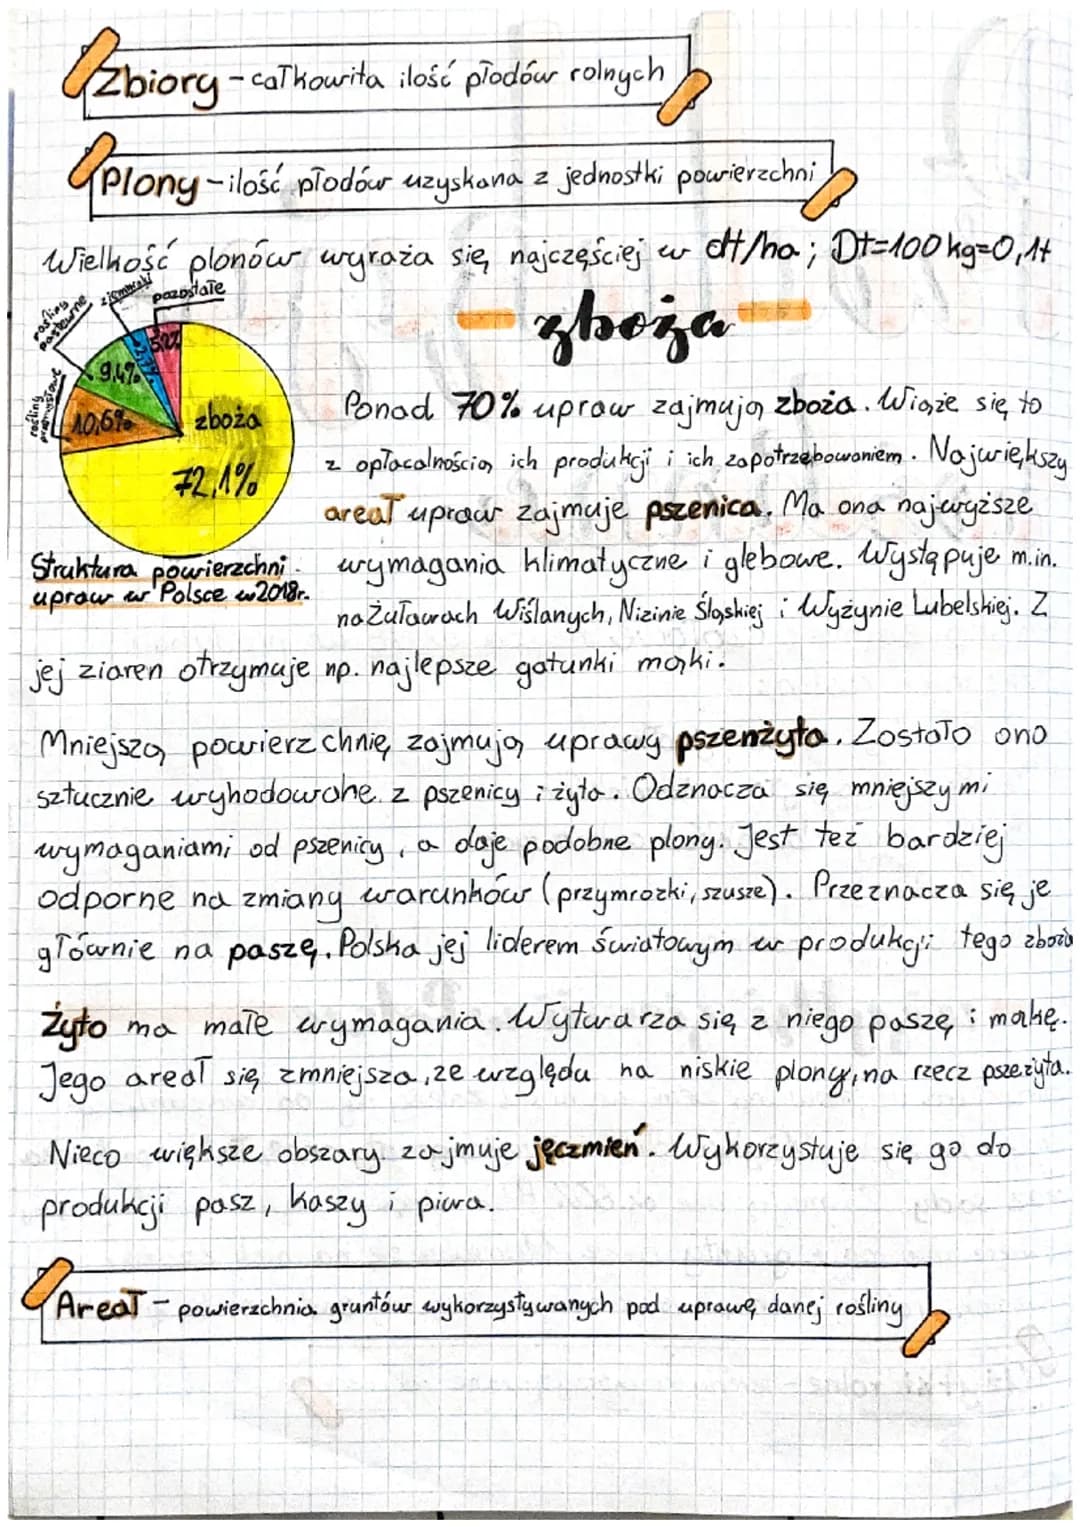 Zbiory - całkowita ilość płodów rolnych
Plony - ilość płodów uzyskana z jednostki powierzchni
Wielkość plonów wyraża się najczęściej w dt/ha; Dt=100kg=0,1t
rośliny pastewne
ziemniaki
pozostałe
rośliny przemysłowe
5,2%
9,4%
10,6%
zboża
72,1%
Struktura powierzchni
upraw w Polsce w 2018r.
zboża
Ponad 70% upraw zajmują zboża. Wiąże się to
z opłacalnością ich produkcji i ich zapotrzebowaniem. Największy
areał upraw zajmuje pszenica. Ma ona najwyższe
wymagania klimatyczne i glebowe. Występuje m.in.
na Żuławach Wiślanych, Nizinie Śląskiej i Wyżynie Lubelskiej. Z
jej ziaren otrzymuje np. najlepsze gatunki mąki.
Mniejszą powierzchnię zajmują uprawy pszenżyta. Zostało ono
sztucznie wyhodowane z pszenicy i żyta. Odznacza się mniejszymi
wymaganiami od pszenicy, a daje podobne plony. Jest też bardziej
odporne na zmiany warunków (przymrozki, szusze). Przeznacza się je
głównie na paszę. Polska jej liderem światowym w produkcji tego zboża
Żyto ma małe wymagania. Wytwarza się z niego paszę i mąkę.
Jego areał się zmniejsza, ze względu na niskie plony, na rzecz pszeżyta.
Nieco większe obszary zajmuje jęczmień. Wykorzystuje się go do
produkcji pasz, kaszy i piwa.
Areał - powierzchnia gruntów wykorzystywanych pod uprawę danej rośliny